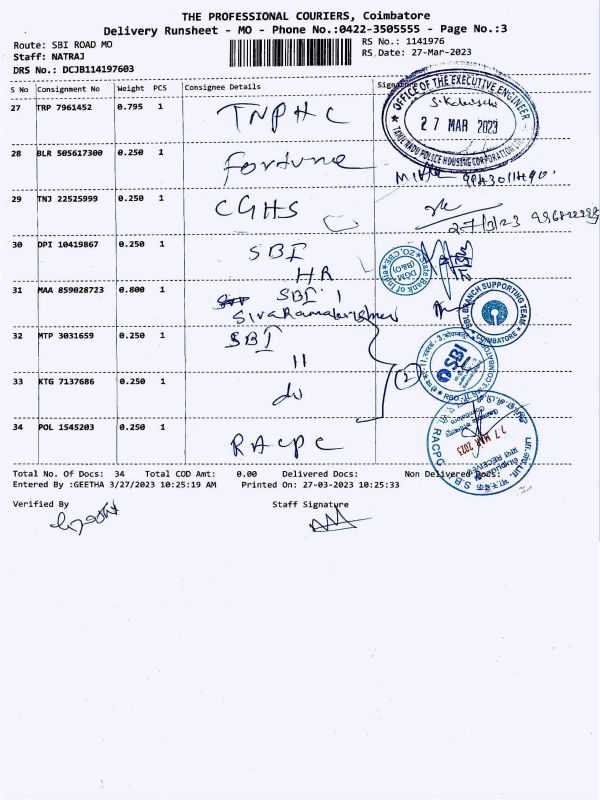 THE PROFESSIONAL COURIERS, Coimbatore
Delivery Runsheet - MO - Phone No.:0422-3505555 - Page No.:3
Route: SBI ROAD MO
RS No.: 1141976
Staff: NATRAJ
RS Date: 27-Mar-2023
DRS No.: DCJB114197603
S No Consignment No Weight PCS Consignee Details
27 TRP 7961452 0.795 1 TNPHC
OFFICE OF THE EXECUTIVE ENGINEER
27 MAR 2023
TAMIL NADU POLICE HOUSING CORPORATION
28 BLR 505617300 0.250 1 Fortune
29 TNJ 22525999 0.250 1 CGHS
27/3/23
30 DPI 10419867 0.250 1 SBI
HR
State Bank of India
DGM
(B&O)
31 MAA 859028723 0.800 1 SBI
Sivaramakrishnan
SBI, BRANCH SUPPORTING TEAM
COIMBATORE
32 MTP 3031659 0.250 1 SBI
11
2
SBI
33 KTG 7137686 0.250 1 do
34 POL 1545203 0.250 1 RACPC
27 MAR 2023
RACPC
Total No. Of Docs: 34 Total COD Amt: 0.00 Delivered Docs: Non Delivered Docs:
Entered By :GEETHA 3/27/2023 10:25:19 AM Printed On: 27-03-2023 10:25:33
Verified By Staff Signature